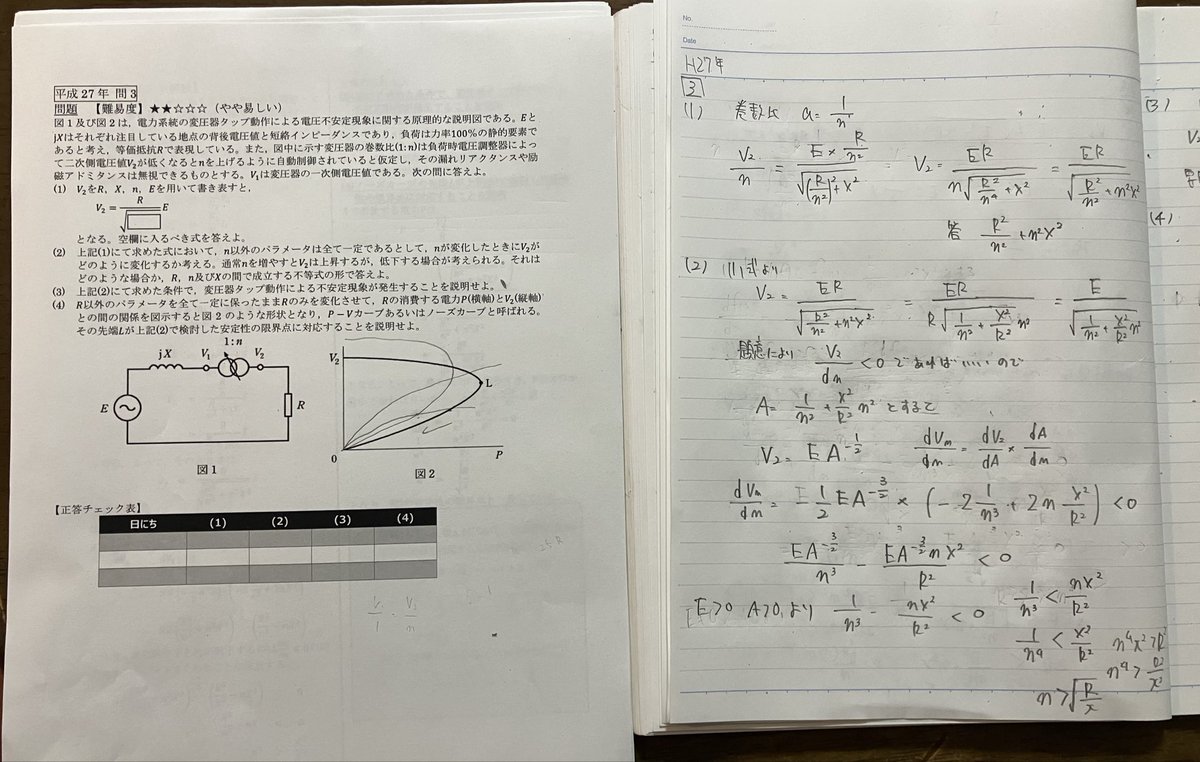 平成27年 問3
問題 【難易度】★★☆☆☆（やや易しい）
図1及び図2は，電力系統の変圧器タップ動作による電圧不安定現象に関する原理的な説明図である。Eと
jXはそれぞれ注目している地点の背後電圧値と短絡インピーダンスであり，負荷は力率100%の静的要素で
あると考え，等価抵抗Rで表現している。また，図中に示す変圧器の巻数比(1:n)は負荷時電圧調整器によっ
て二次側電圧値V₂が低くなるとnを上げるように自動制御されていると仮定し，その漏れリアクタンスや励
磁アドミタンスは無視できるものとする。V₁は変圧器の一次側電圧値である。次の問に答えよ。
(1) V₂をR，X，n，Eを用いて書き表すと，
V₂= R/√□ E
となる。空欄に入るべき式を答えよ。
(2) 上記(1)にて求めた式において，n以外のパラメータは全て一定であるとして，nが変化したときにV₂が
どのように変化するか考える。通常nを増やすとV₂は上昇するが，低下する場合が考えられる。それは
どのような場合か，R，n及びXの間で成立する不等式の形で答えよ。
(3) 上記(2)にて求めた条件で，変圧器タップ動作による不安定現象が発生することを説明せよ。
(4) R以外のパラメータを全て一定に保ったままRのみを変化させて，Rの消費する電力P(横軸)とV₂(縦軸)
との間の関係を図示すると図2のような形状となり，P－Vカーブあるいはノーズカーブと呼ばれる。
その先端Lが上記(2)で検討した安定性の限界点に対応することを説明せよ。
jX V₁ 1:n V₂
E R
図1
V₂ L
0 P
図2
【正答チェック表】
日にち (1) (2) (3) (4)
No.
Date
H27年
3
(1) 巻数比 a= 1/n
V₂/n = (E × R/n²)/√((R/n²)²+X²) V₂= ER/(n√(R²/n⁴+X²)) = ER/√(R²/n²+n²X²)
答 R²/n²+n²X²
(2) (1)式より
V₂= ER/√(R²/n²+n²X²) = ER/(R√(1/n²+X²/R² n²)) = E/√(1/n²+X²/R² n²)
題意により V₂/dn <0 であればいいので
A= 1/n²+X²/R² n² とすると
V₂= EA^(-1/2) dVm/dn = dV₂/dA × dA/dn
dVm/dn = -1/2 EA^(-3/2) × (-2 1/n³ + 2n X²/R²) <0
EA^(-3/2)/n³ - EA^(-3/2)nX²/R² <0
E>0 A>0より 1/n³ - nX²/R² <0 1/n³ < nX²/R²
1/n⁴ < X²/R² n⁴X²>R²
n⁴> R²/X²
n>√(R/X)
(3)
(4)